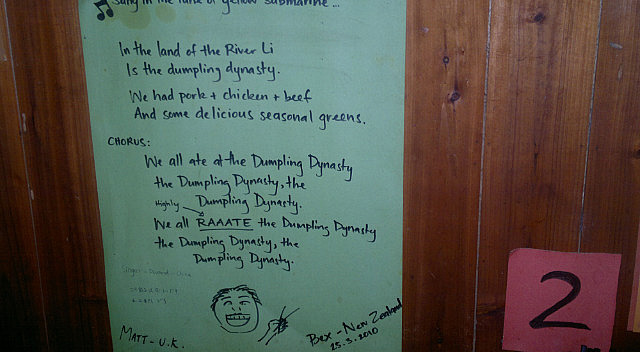 sung in the tune of yellow submarine ...
In the land of the River Li
Is the dumpling dynasty.
We had pork + chicken + beef
And some delicious seasonal greens.
CHORUS:
We all ate at the Dumpling Dynasty
the Dumpling Dynasty, the
Dumpling Dynasty.
Highly
We all RAAATE the Dumpling Dynasty
the Dumpling Dynasty, the
Dumpling Dynasty.
MATT - U.K.
Bex - New Zealand
25.3.2010
2